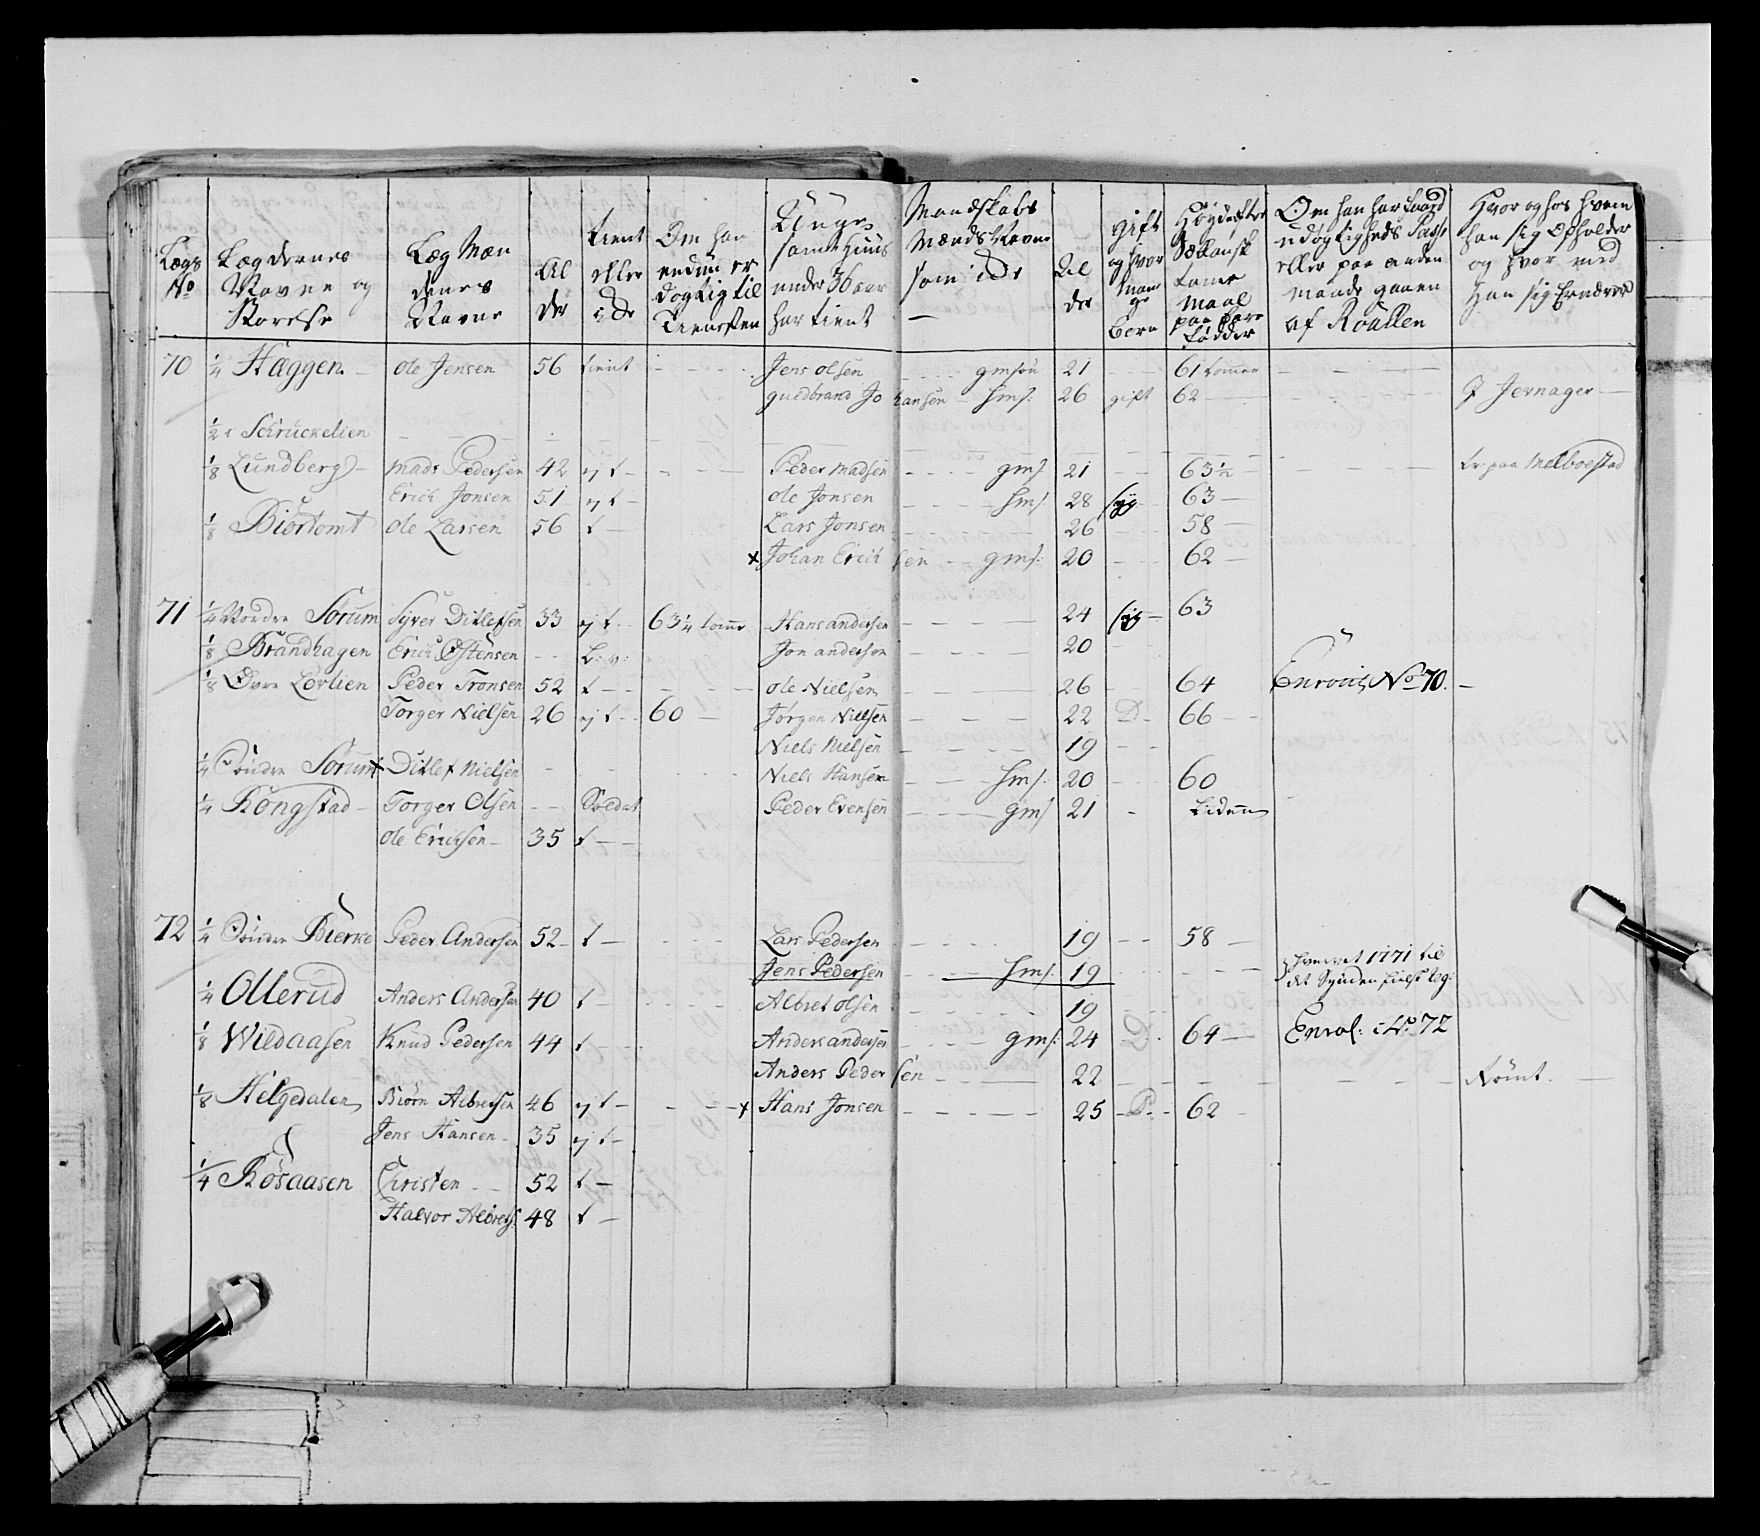 Lægs No
Lægdernes Navne og Størelse
Læg Mæn denes Navne
Al der
tient eller ej
Om han endnu er dogtig til Tienesten
Unge Mandskabs
samt Huus Mænds Navne
under 36 aar som icke
har tient
Al der
gift og hvor Mange Børn
Høyde efter Sællansk tomme Maal paa bare Fødder
Om han har faaed udøgtigheds Pass eller paa anden maade gaaen af Roullen
Hvor og hos hvem han sig opholder og hvor med Han sig Ernærer
70 1/4 Haggen Ole Jensen 56 tient Jens olsen gmsøn 21 61 tommer
guldbrand Johansen hms: 26 gift 62 J Jevnager
1/2 Schruckelien
1/8 Lundberg Mads Pedersen 42 ej t Peder Madsen gms 21 63 1/2 paa Melboestad
Erich Jonsen 51 ej t ole Jonsen hms: 28 syg 63
1/8 Biørtomt Ole Larsen 56 t Lars Jonsen 26 58
x Johan Erichsen gms: 20 62
71 1/4 Nordre Sørum Syver Ditlefsen 33 ej t 63 1/4 tomme Hans andersen 24 syg 63
1/8 Brandhagen Erich Østensen L: v: Jon anderson 20
1/8 Øvre Lørlien Peder Tronsen 52 t ole Nielsen 26 64 Enroul No 70.
Torger Nielsen 26 ej t 60 Jørgen Nielsen 22 D 66
Niels Nielsen 19
1/4 Søndre Sørum x Ditlef Nielsen Niels Hansen hms: 20 60
1/4 Kongstad Torger Olsen Soldat Peder Evensen gms 21 Liden
ole Erichsen 35 t
72 1/4 Søndre Bierke Peder Andersen 52 t Lars Pedersen 19 58
Jens Pedersen hms: 19 1771 til det Synden field: leg:
1/4 Ollerud Anders Andersen 40 t Albret olsen 19
1/8 Wildaasen Knud Pedersen 44 t Anders andersen gms: 24 D 64 Enrol: i No 72
Anders Pedersen 22 Rømt.
1/8 Helgedalen Biørn Albretsen 46 ej t x Hans Jonsen 25 D 62
Jens Hansen 35 ej t
1/4 Røsaasen Christen 52 t
Halvor Albrets: 48 t